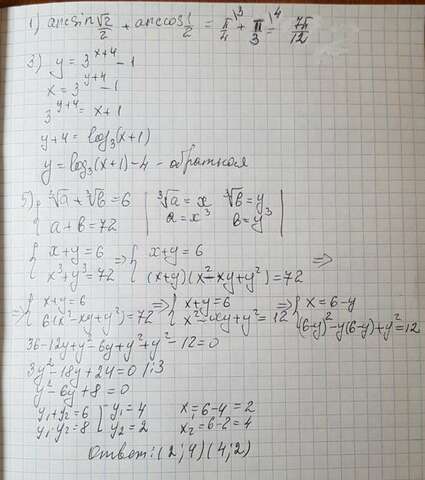 1) arcsin √2/2 + arccos 1/2 = π/4 \3 + π/3 \4 = 7π/12
3) y = 3^(x+4) - 1
x = 3^(y+4) - 1
3^(y+4) = x+1
y+4 = log₃(x+1)
y = log₃(x+1) - 4 - обратная
5) { ∛a + ∛b = 6 | ∛a = x ∛b = y |
a + b = 72 | a = x³ b = y³ |
{ x+y = 6 ⇒ { x+y = 6 ⇒
x³+y³ = 72 (x+y)(x²-xy+y²) = 72
⇒ { x+y = 6 ⇒ { x+y = 6 ⇒ { x = 6-y
6(x²-xy+y²) = 72 x²-xy+y² = 12 (6-y)²-y(6-y)+y² = 12
36-12y+y²-6y+y²+y²-12=0
3y²-18y+24=0 /:3
y²-6y+8=0
y₁+y₂=6 y₁=4 x₁=6-4=2
y₁·y₂=8 y₂=2 x₂=6-2=4
Ответ: (2;4)(4;2)